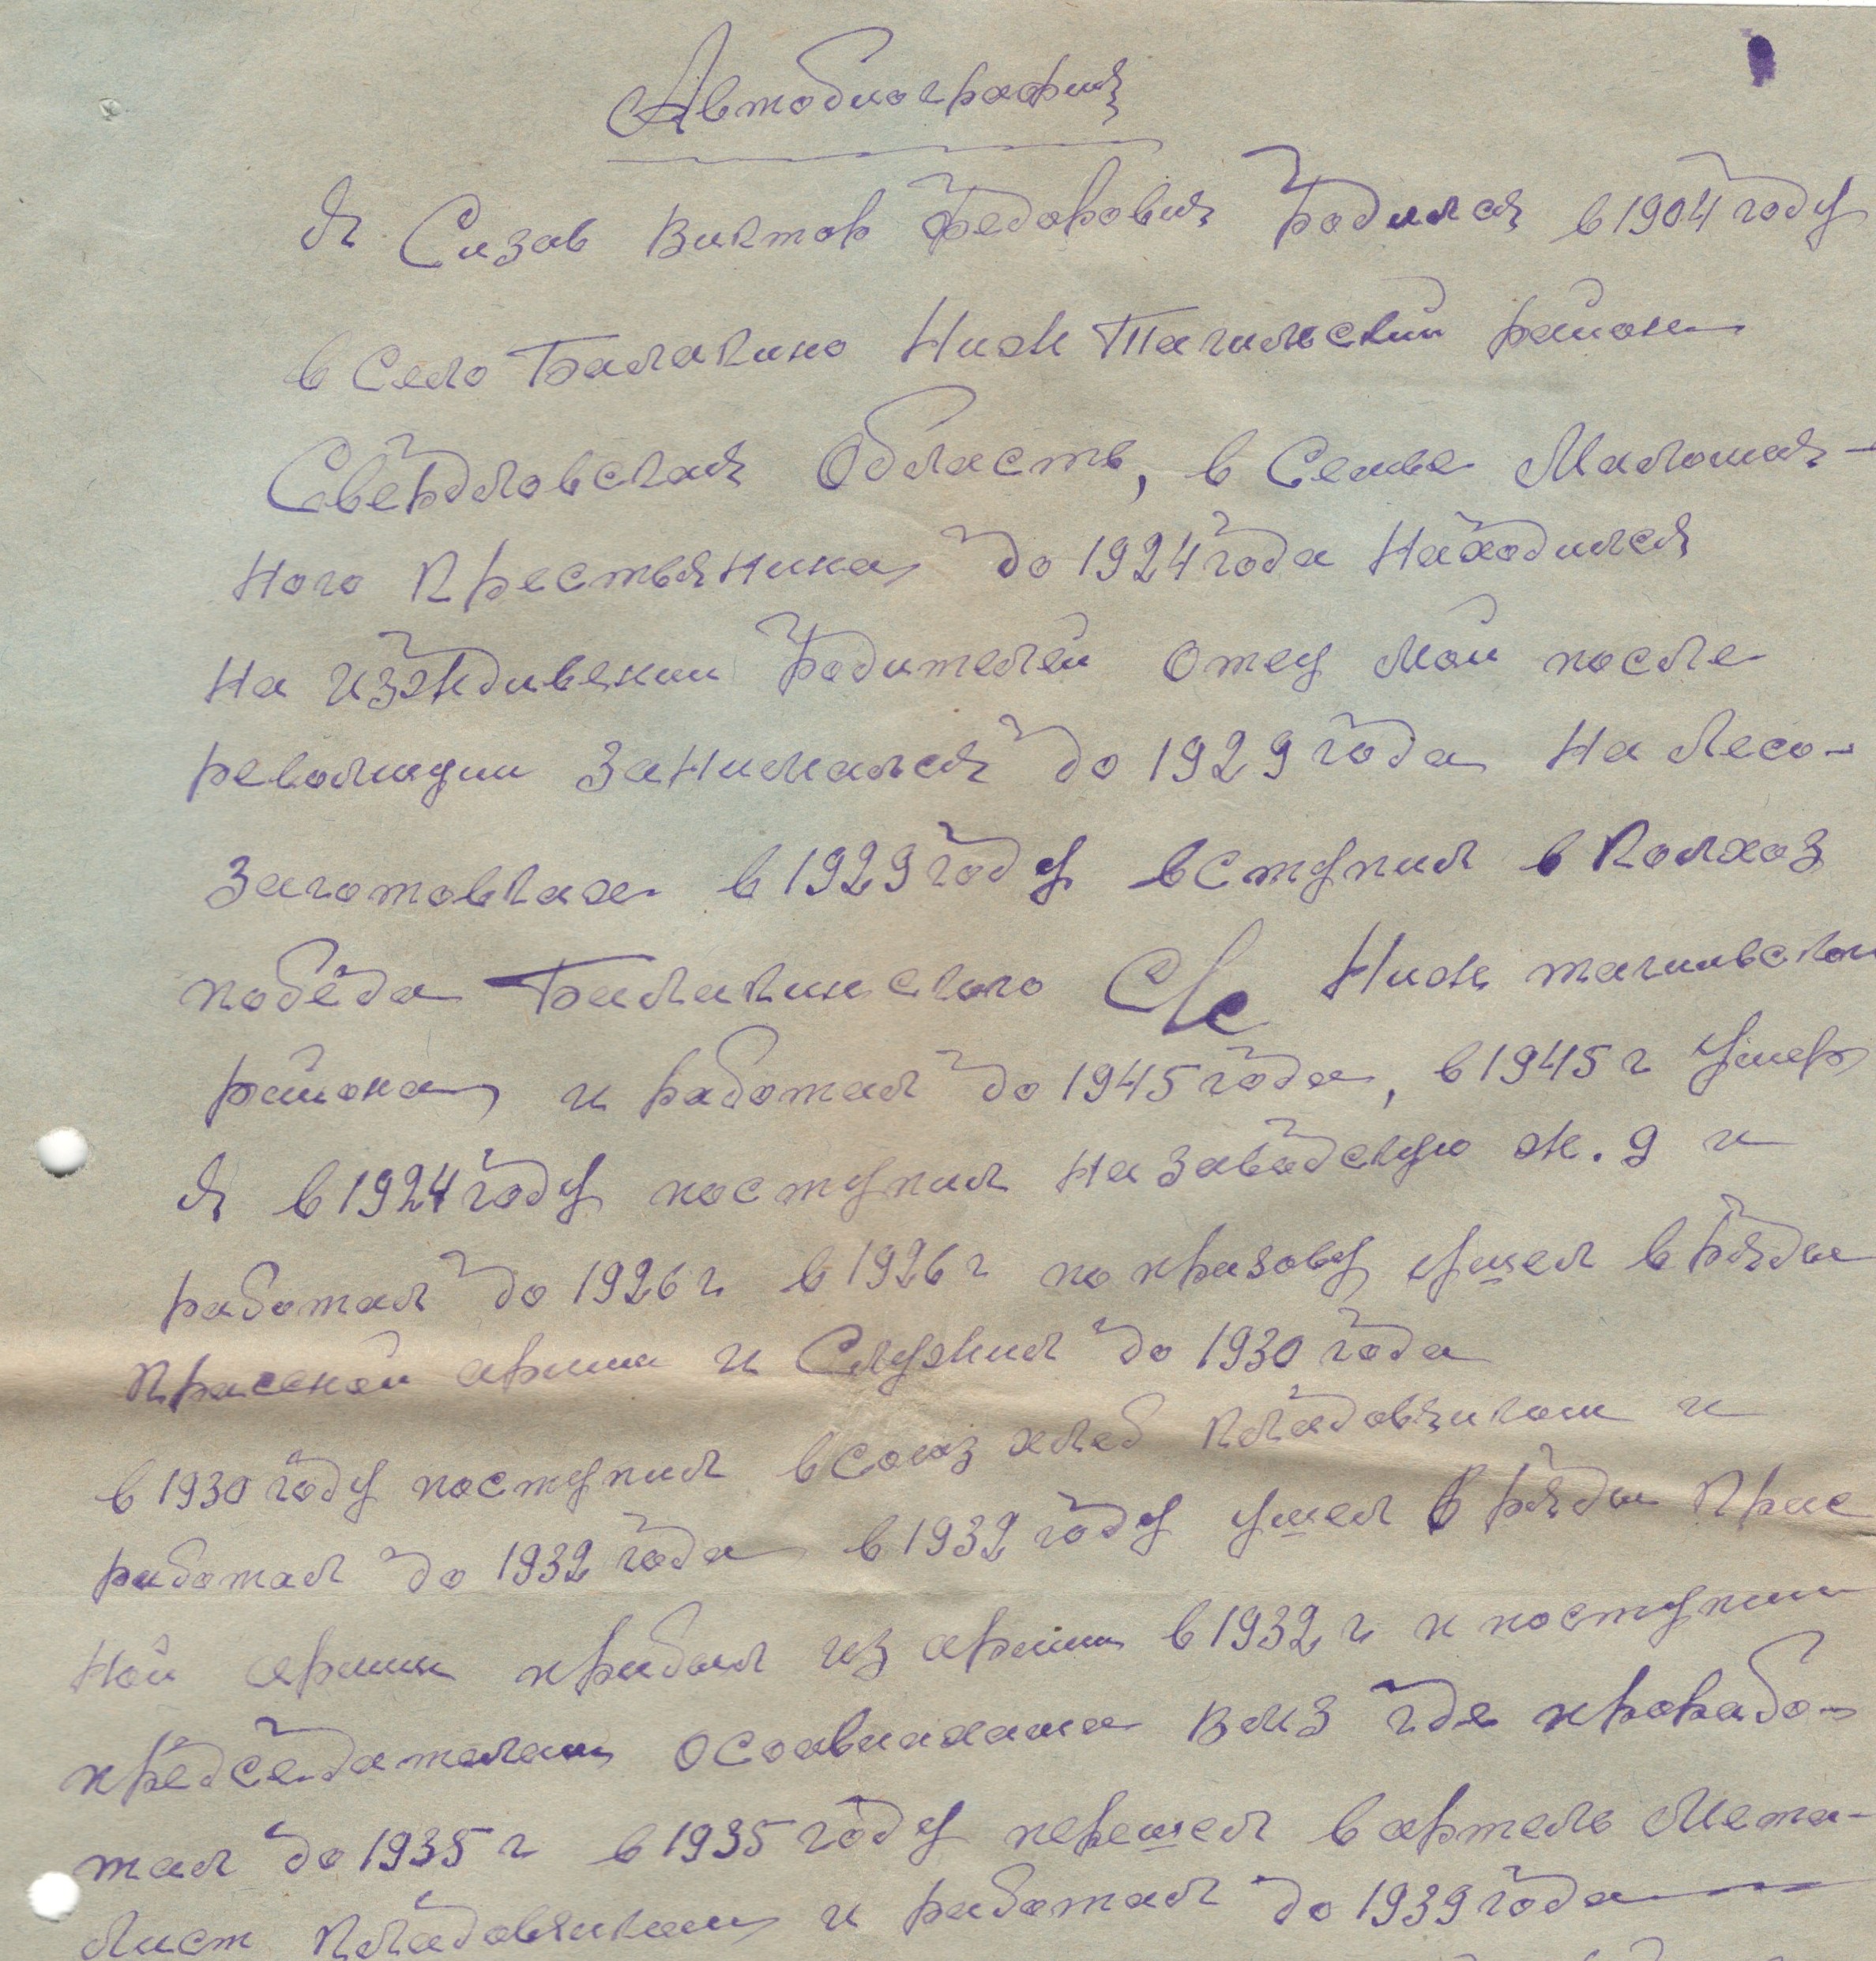 Автобиография
Я Сизов Виктор Федорович родился в 1904 году
в село Балакино Ниж Тагильский район
Свердловская область, в семье маломощ-
ного крестьянина до 1924 года находился
на изждивении родителей отец мой после
революции занимался до 1929 года на лесо-
заготовках в 1929 году вступил в колхоз
победа Балакинского С/с Ниж тагильском
района, и работал до 1945 года, в 1945 г умер
Я в 1924 году поступил на завадскую ж.д и
работал до 1926 г. в 1926 г по призову ушел в ряды
красной армии и служил до 1930 года
в 1930 году поступил в союз хлеб кладовщиком и
работал до 1932 года в 1932 году ушел в ряды крас
ной армии прибыл из армии в 1932 г и поступил
председателем осоавиахима ВМЗ где прорабо-
тал до 1935 г в 1935 году перешел в артель Мета-
лист кладовщиком и работал до 1939 года